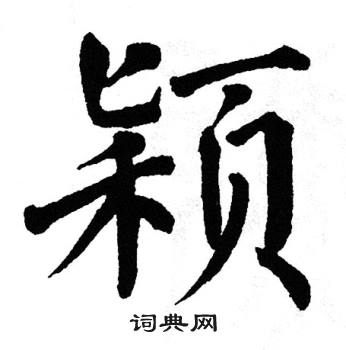 颖
词典网